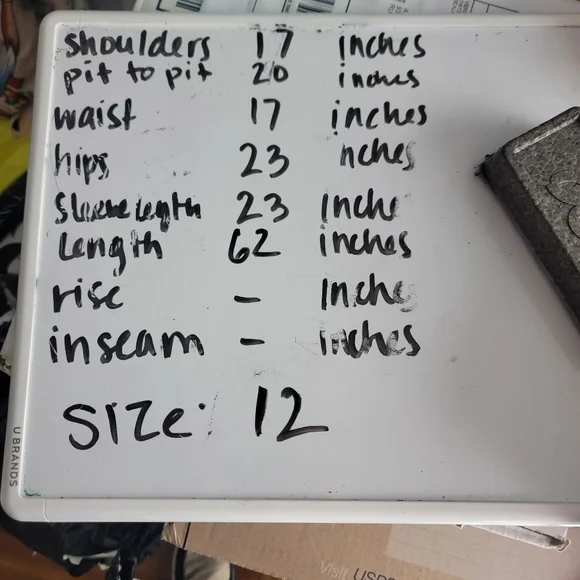 shoulders 17 inches
pit to pit 20 inches
waist 17 inches
hips 23 nches
sleeve length 23 Inche
Length 62 inches
rise - Inche
inseam - inches
SIZe: 12
U BRANDS
Visit USPS